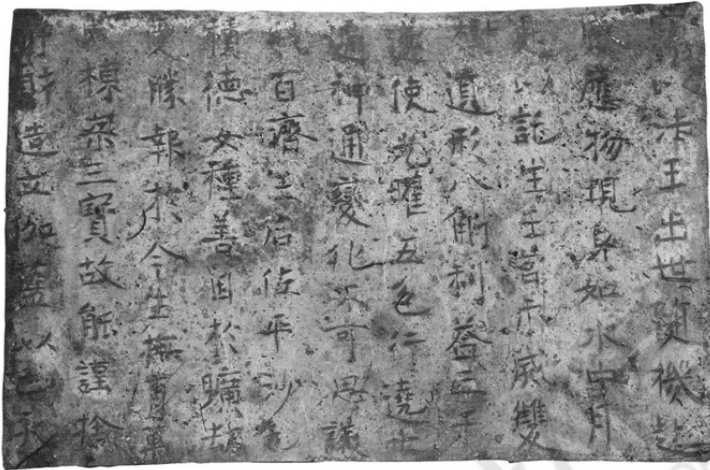 以法王出世隨機赴
應物現身如水中月
以託生王宮示滅雙
遺形八斛利益三千
遂使光曜五色行遶七
遍神通變化不可思議
我百濟王后佐平沙乇
積德女種善因於曠劫
受勝報於今生撫育萬
民棟梁三寶故能謹捨
淨財造立伽藍以己亥